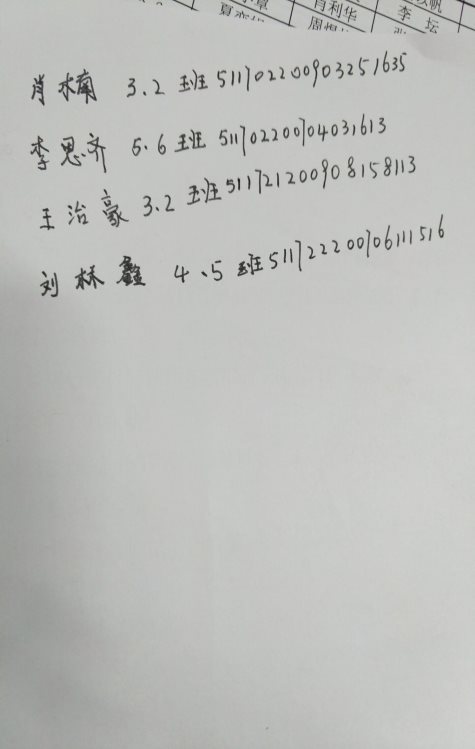 肖利华
李 坛
肖楠 3.2 班 511702200903251635
李思齐 5.6 班 511702200704031613
王治豪 3.2 班 511721200908158113
刘林鑫 4、5 班 511722200706111516